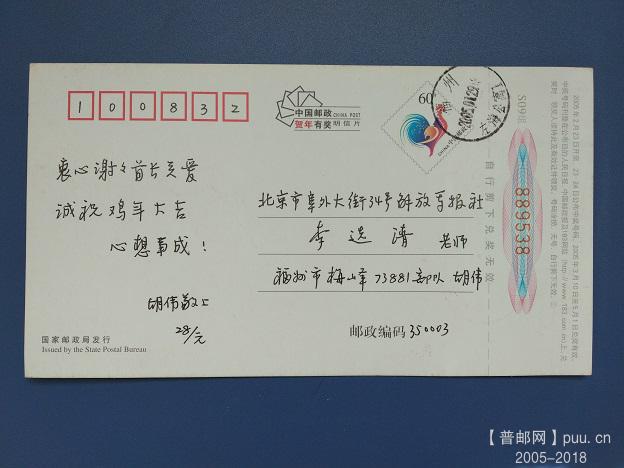 100832
中国邮政 CHINA POST
贺年有奖 明信片
60
2005.01.29
S09组
889538
衷心谢谢首长关爱
诚祝鸡年大吉
心想事成！
胡伟敬上
28/元
北京市阜外大街34号解放军报社
李选清 老师
福州市梅山峰73881部队 胡伟
邮政编码350003
自行剪下兑奖无效
国家邮政局发行
Issued by the State Postal Bureau
【普邮网】puu.cn
2005-2018